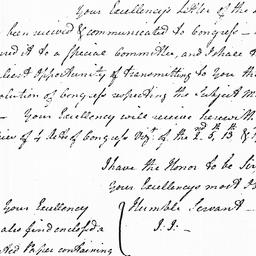 Your Excellency's Letter of the
been received & communicated to Congress —
red it to a special Committee, and I shall t
liest Opportunity of transmitting to You the
olution of Congress respecting the Subject M
— Your Excellency will receive herewith
ies of 4 Acts of Congress Viz.t of the 2.nd 5, 13 &
I have the Honor to be Sir
Your Excellencys most
Humble Servant —
J. J. —
Your Excellency
also find enclosed a
ted Paper containing